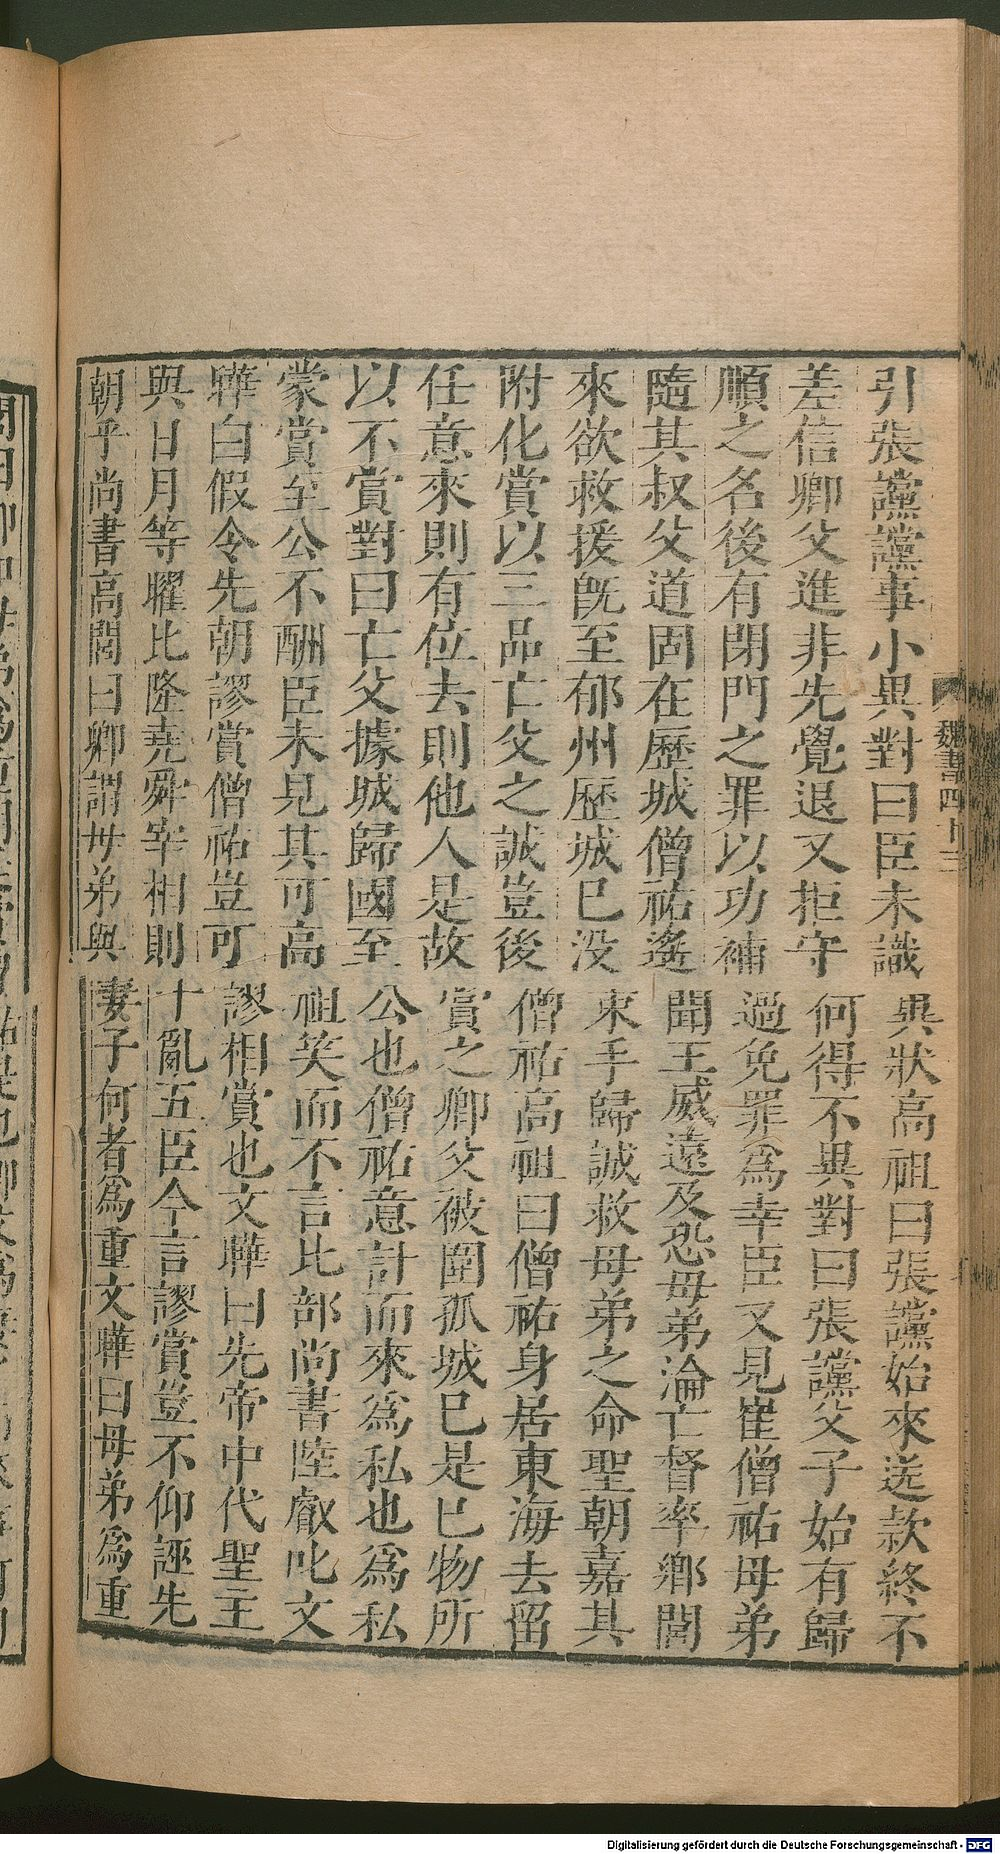 引張讜讜事小異對曰臣未識異狀高祖曰張讜始來送款終不
差信卿父進非先覺退又拒守何得不異對曰張讜父子始有歸
順之名後有閉門之罪以功補過免罪爲幸臣又見崔僧祐母弟
隨其叔父道固在歷城僧祐遙聞王威遠及恐母弟淪亡督率鄉閭
來欲救援旣至郁州歷城巳没束手歸誠救母弟之命聖朝嘉其
附化賞以三品亡父之誠豈後僧祐高祖曰僧祐身居東海去留
任意來則有位去則他人是故賞之卿父被圍孤城巳是巳物所
以不賞對曰亡父據城歸國至公也僧祐意計而來爲私也爲私
蒙賞至公不酬臣未見其可高祖笑而不言比部尚書陸叡叱文
曄白假令先朝謬賞僧祐豈可謬相賞也文曄曰先帝中代聖主
與日月等曜比隆堯舜宰相則十亂五臣今言謬賞豈不仰誣先
朝乎尚書高閭曰卿謂母弟與妻子何者爲重文曄曰母弟爲重
魏書四十三
Digitalisierung gefördert durch die Deutsche Forschungsgemeinschaft - DFG